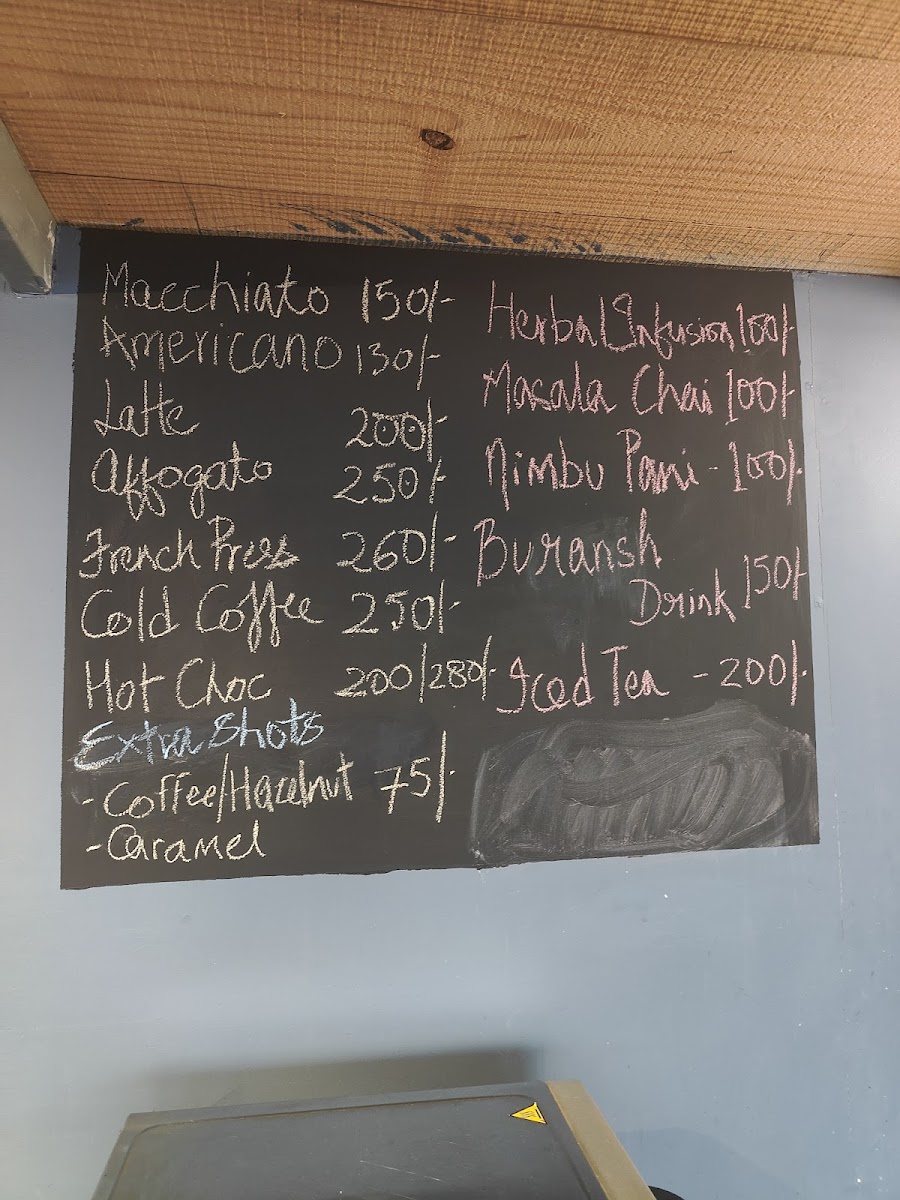 Macchiato 150/-
Americano 130/-
Latte 200/-
Affogato 250/-
French Press 260/-
Cold Coffee 250/-
Hot Choc 200/280/-
Extra Shots
- Coffee/Hazelnut 75/-
- Caramel
Herbal Infusion 100/-
Masala Chai 100/-
Nimbu Pani - 100/-
Buransh
Drink 150/-
Iced Tea - 200/-